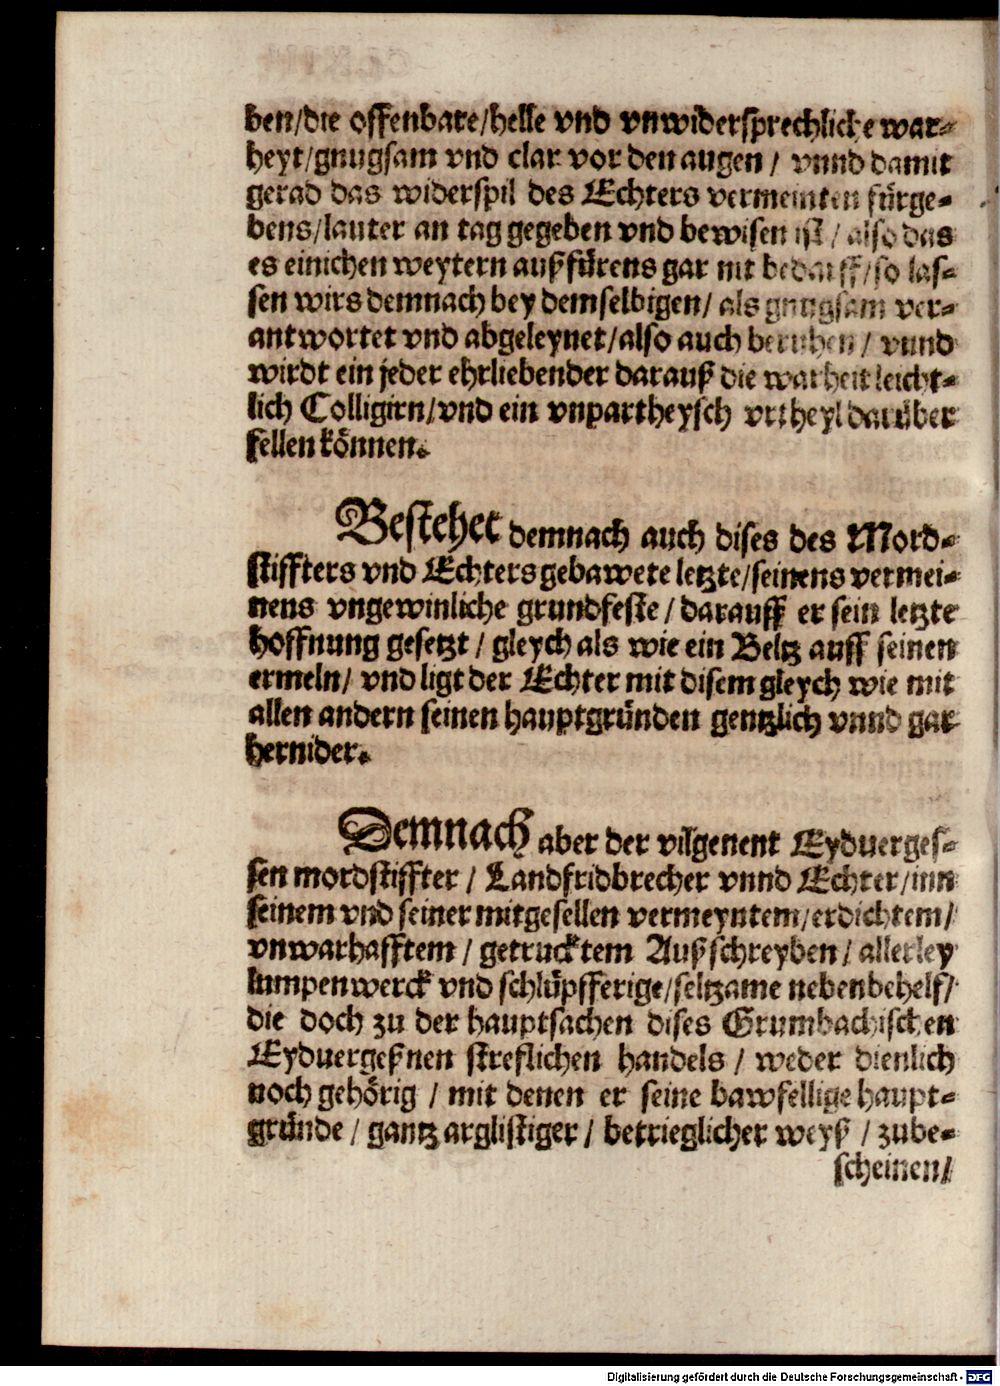 ben/die offenbare/helle vnd vnwidersprechliche war-
heyt/gnugsam vnd clar vor den augen / vnnd damit
gerad das widerspil des Echters vermeinten fürge-
bens/lauter an tag gegeben vnd bewisen ist / also das
es einichen weytern außfürens gar nit bedarff/so las-
sen wirs demnach bey demselbigen/ als gnugsam ver-
antwortet vnd abgeleynet/also auch beruhen / vnnd
wirdt ein jeder ehrliebender darauß die warheit leicht-
lich Colligirn/vnd ein vnpartheysch vrtheyl darüber
fellen können.
Bestehet demnach auch dises des Mord-
stiffters vnd Echters gebawete letzte/seinens vermei-
nens vngewinliche grundfeste / darauff er sein letzte
hoffnung gesetzt / gleych als wie ein Beltz auff seinen
ermeln/ vnd ligt der Echter mit disem gleych wie mit
allen andern seinen hauptgründen gentzlich vnnd gar
hernider.
Demnach aber der vilgenent Eyduerges-
sen mordstiffter / Landfridbrecher vnnd Echter/inn
seinem vnd seiner mitgesellen vermeyntem/erdichtem/
vnwarhafftem / getrucktem Außschreyben / allerley
lumpenwerck vnd schlüpfferige/seltzame nebenbehelf/
die doch zu der hauptsachen dises Grumbachischen
Eyduergeßnen streflichen handels / weder dienlich
noch gehörig / mit denen er seine bawfellige haupt-
gründe / gantz arglistiger / betrieglicher weyß / zube-
scheinen/
Digitalisierung gefördert durch die Deutsche Forschungsgemeinschaft - DFG